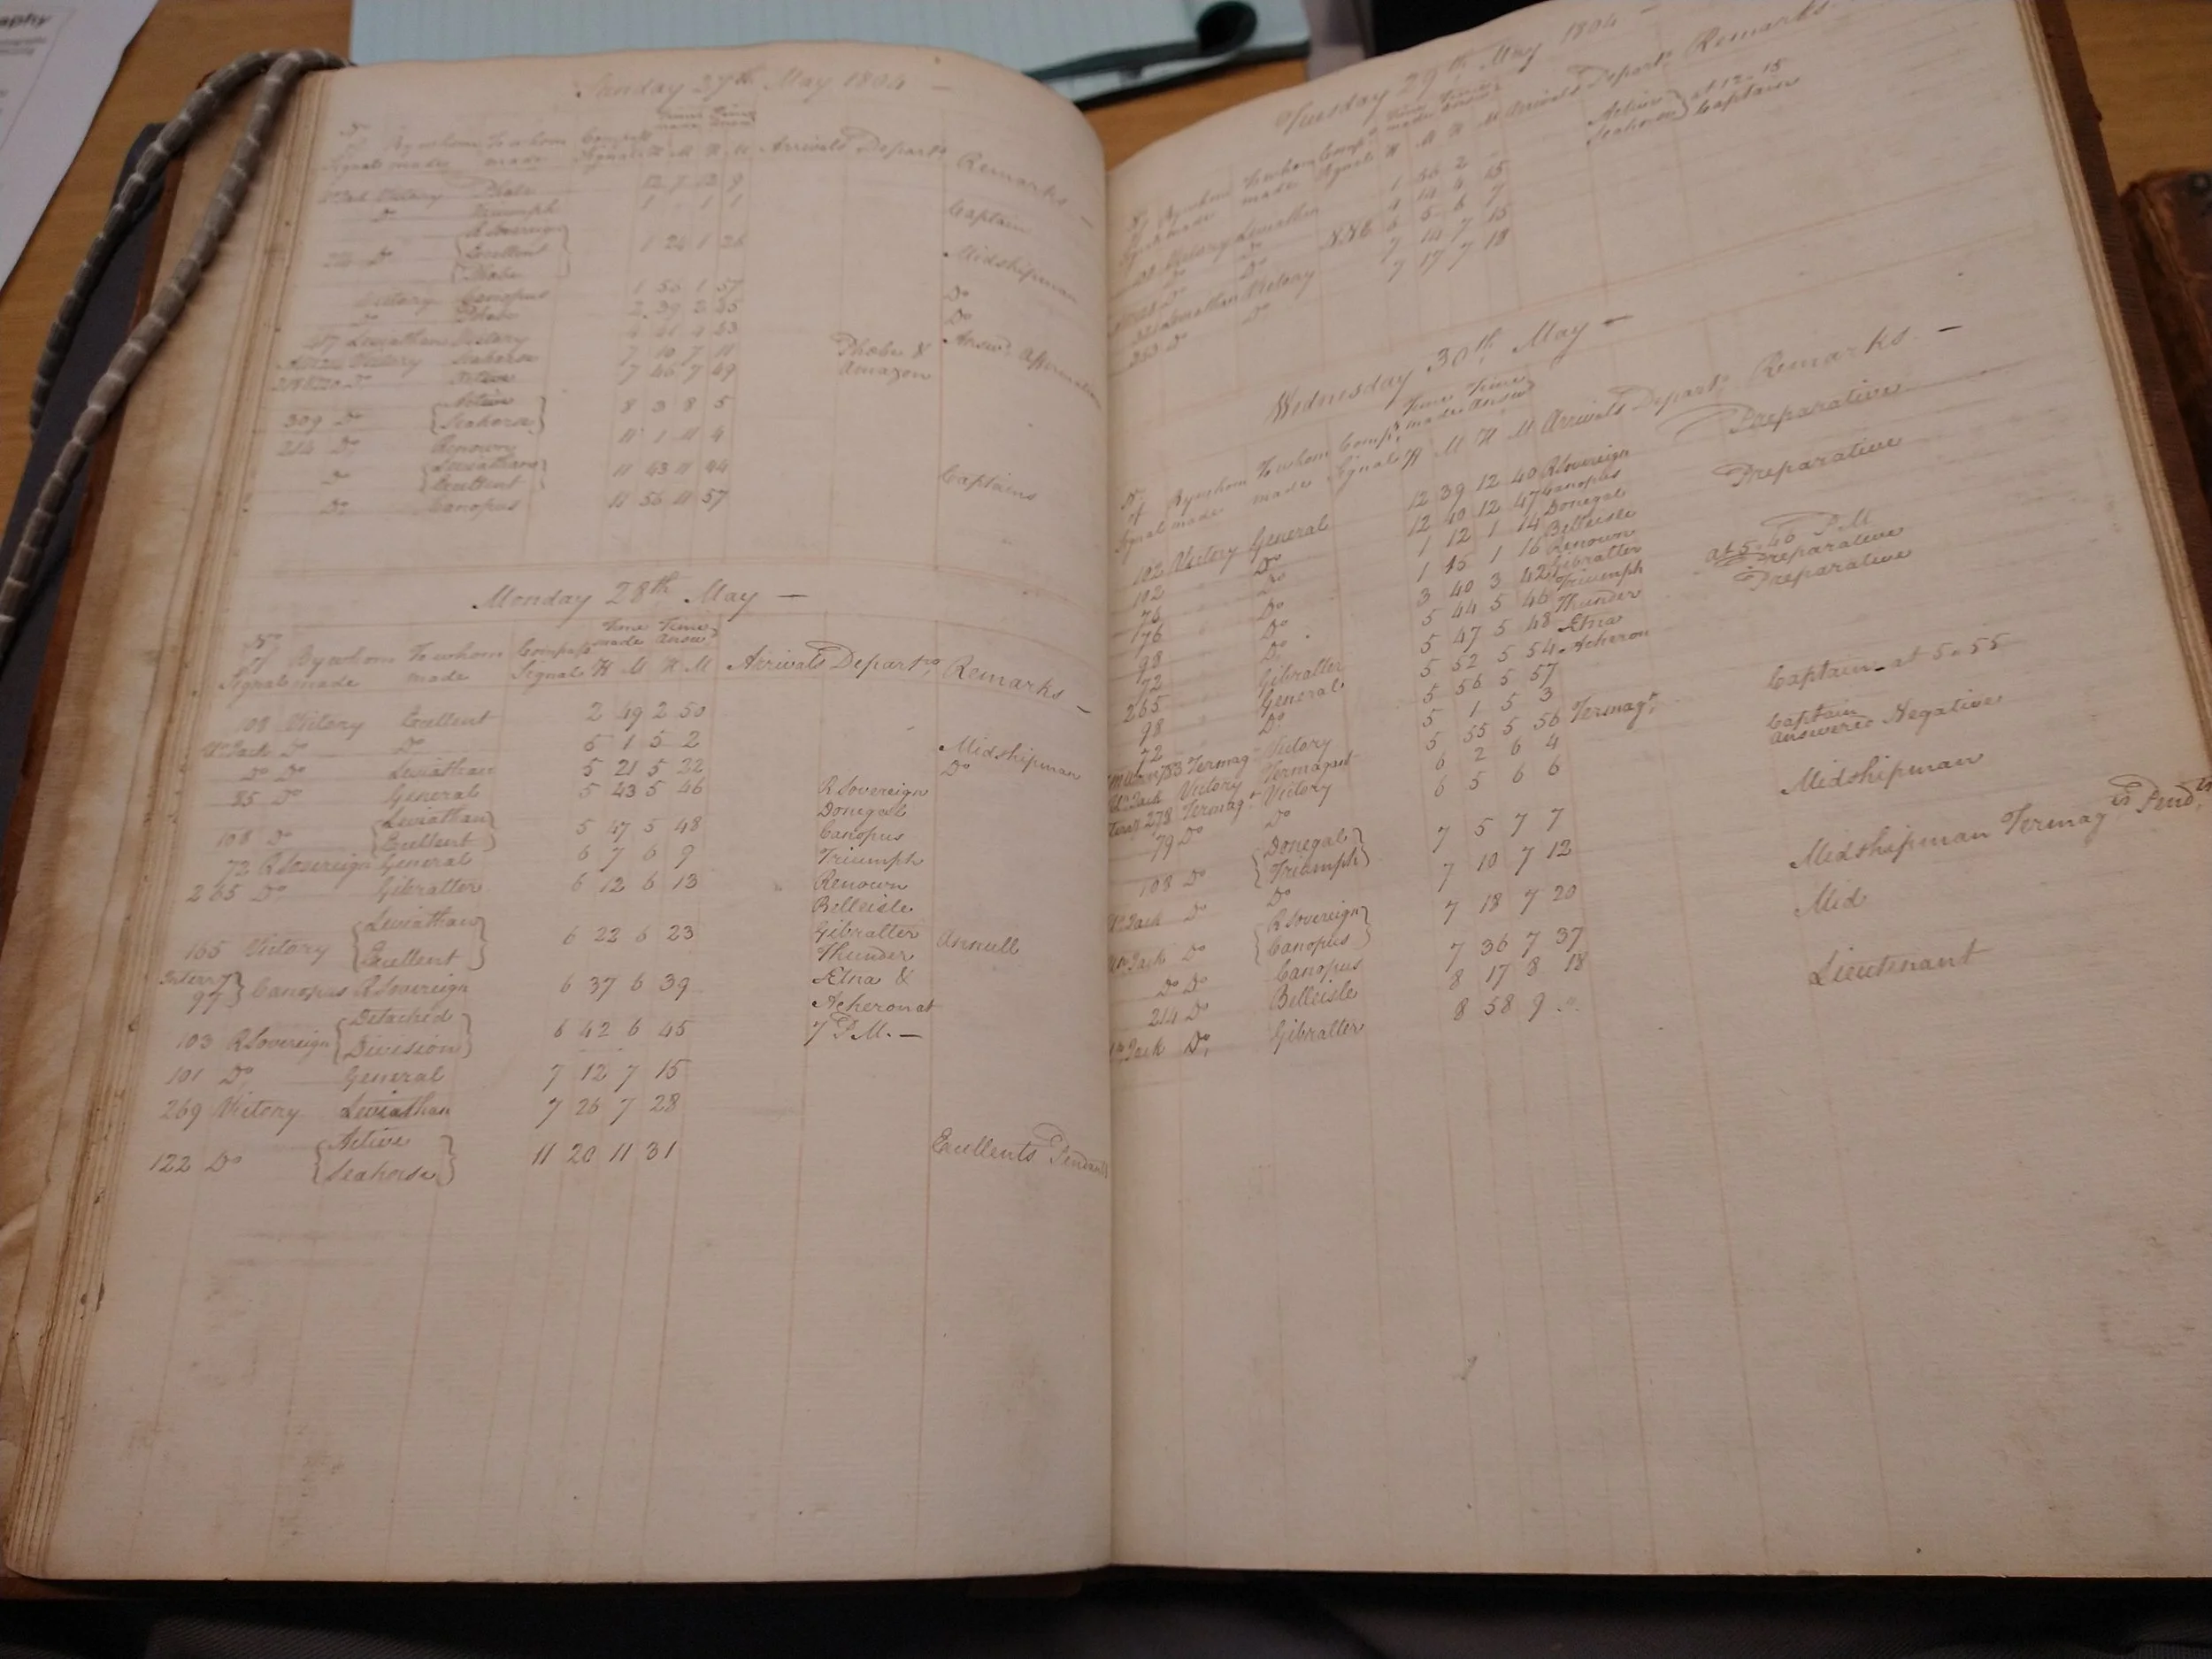 Sunday 27th May 1804 —
No of Signals By whom made To whom made Compass Signals Time made Time Answd H M H M Arrivals Departs Remarks —
Victory Phoebe 12 7 12 9
Do Triumph 1 1 1 Captain
R Sovereign
214 Do Excellent 1 24 1 26 Midshipman
Phoebe
Victory Canopus 1 55 1 57 Do
Do Phoebe 2 39 2 45 Do
Leviathan Victory 4 41 4 43 Answd Affirmative
Victory Seahorse 7 10 7 11 Phoebe &
Do Active 7 46 7 49 Amazon
309 Do Active Seahorse 8 3 8 5
214 Do Renown 11 1 11 4
Do Leviathan Excellent 11 43 11 44 Captains
Do Canopus 11 56 11 57
Monday 28th May —
No of Signals By whom made To whom made Compass Signals Time made Time Answd H M H M Arrivals Departs Remarks —
108 Victory Excellent 2 49 2 50
Un Jack Do Do 5 1 5 2 Midshipman
Do Do Leviathan 5 21 5 22 Do
35 Do General 5 43 5 46 R Sovereign
Donegal
108 Do Leviathan Excellent 5 47 5 48 Canopus
72 R Sovereign General 6 7 6 9 Triumph
265 Do Gibralter 6 12 6 13 Renown
Belleisle
165 Victory Leviathan Excellent 6 22 6 23 Gibralter Annull
Thunder
Interry 97 Canopus R Sovereign 6 37 6 39 Ætna &
Acheron at
103 R Sovereign Detached Division 6 42 6 45 7 P.M. —
101 Do General 7 12 7 15
269 Victory Leviathan 7 26 7 28
122 Do Active Seahorse 11 20 11 31 Excellents Pendants
Tuesday 29th May 1804 —
No of Signals By whom made To whom made Comps Signals Time made Time Answd H M H M Arrivals Departs Remarks
Active Seahorse at 12-15 Captain
Victory Leviathan 1 56 2
Do Do 4 14 4 15
Do Do NNE 6 5 6 7
Leviathan Victory 7 14 7 15
253 Do Do 7 17 7 18
Wednesday 30th May —
No of Signals By whom made To whom made Comps Signals Time made Time Answd H M H M Arrivals Departs Remarks —
102 Victory General 12 39 12 40 R Sovereign Preparative
102 Do 12 40 12 47 Canopus
76 Do 1 12 1 14 Donegal Preparative
76 Do 1 15 1 16 Belleisle
98 Do 3 40 3 42 Renown
72 Gibralter 5 44 5 46 Gibralter at 5-40 P.M
265 General 5 47 5 48 Triumph Preparative
98 Do 5 52 5 54 Thunder Preparative
72 5 56 5 57 Ætna
5 1 5 3 Acheron
Termagt Victory 5 55 5 56 Termagt Captain - at 5-55
Un Jack Victory Termagant 6 2 6 4 Captain
278 Termagt Victory 6 5 6 6 Answered Negative
79 Do Do
108 Do Donegal Triumph 7 5 7 7 Midshipman
Un Jack Do Do 7 10 7 12
Un Jack Do R Sovereign Canopus 7 18 7 20 Midshipman Termagts Pendts
Do Do Canopus 7 36 7 37 Mid
214 Do Belleisle 8 17 8 18
Un Jack Do Gibralter 8 58 9 Lieutenant